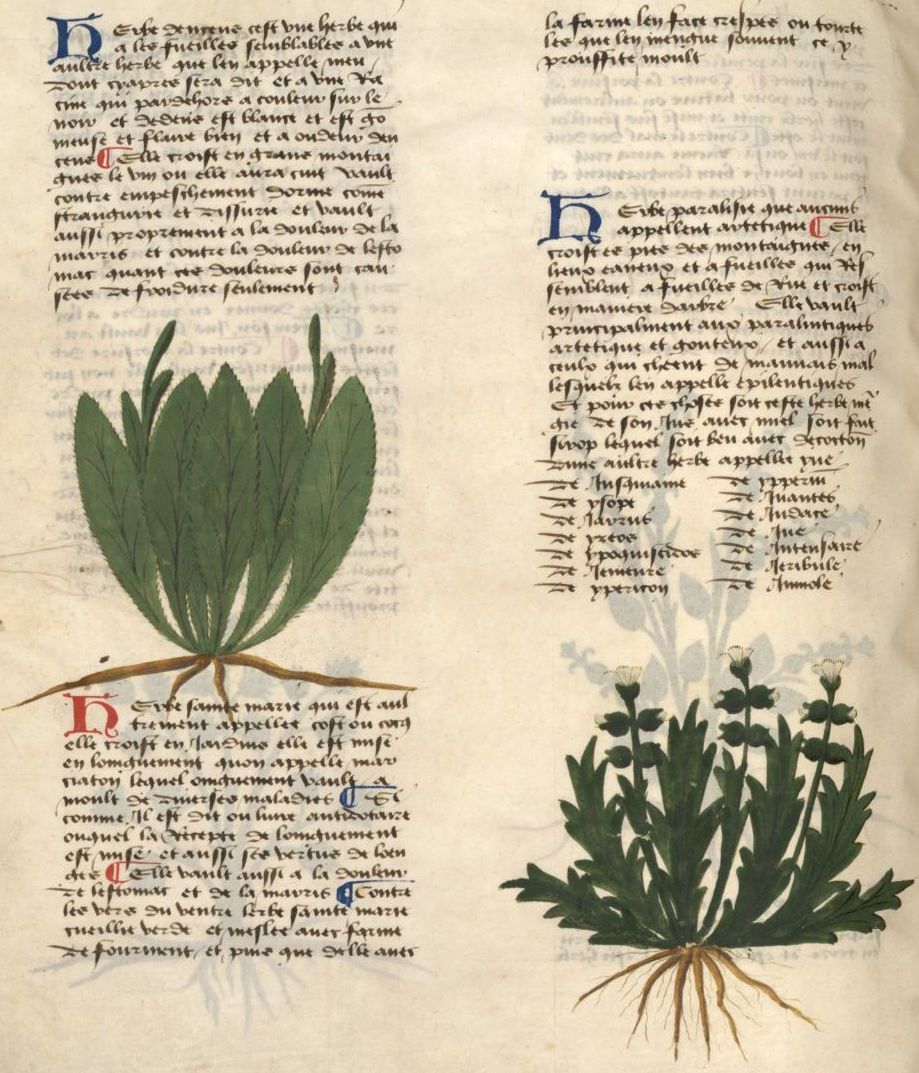 Herbe dencens cest une herbe qui
a les fueilles semblables a une
aultre herbe que len appelle meu
dont cyapres sera dit et a une Ra
cine qui pardehors a couleur sur le
noir et dedens est blance et est go
meuse et flaire bien et a oudeur den
cens Elle croist en grans montai
gnes le vin ou elle aura cuit vault
contre empeschement dorine come
stranguirie et dissurie et vault
aussi proprement a la douleur de la
marris et contre la douleur de lesto
mac quant ces douleurs sont cau
sees de froidure seulement
Herbe sainte marie qui est aul
trement appellee cost ou
elle croist en Jardins elle est mise
en loinguement quon appelle mar
ciaton lequel oinguement vault a
moult de diverses maladies Si
comme Il est dit ou livre antidotaire
ouquel la Recepte de loinguement
est mise et aussi ses vertus de loen
ges Elle vault aussi a la douleur
de lestomac et de la marris Contre
les vers du ventre lerbe sainte marie
cueillie verde et meslee avec farine
de fourment et puis que delle avec
la farine len face crespes ou tourte
les que len mengue souvent ce y
prouffite moult
Herbe paralisie que aucuns
appellent artetique Elle
croist es pies des montaignes en
lieux eaueux et a fueilles qui Res
semblent a fueilles de Rue et croist
en maniere darbre Elle vault
principalment aux paralintiques
artetique et gouteux et aussi a
ceulx qui cheent de mauvais mal
lesquelz len appelle epilentiques
Et pour ces choses soit ceste herbe me
gie de son Jus avec miel soit fait
sirop lequel soit beu avec decoction
dune aultre herbe appellee yve
De Jusquiame De ypperin
De ysope De Juantes
De Jarrus De Judace
De yreos De Jue
De ypoquistidos De Jntensaire
De Jemeure De Jeribule
De ypericon De Jumole